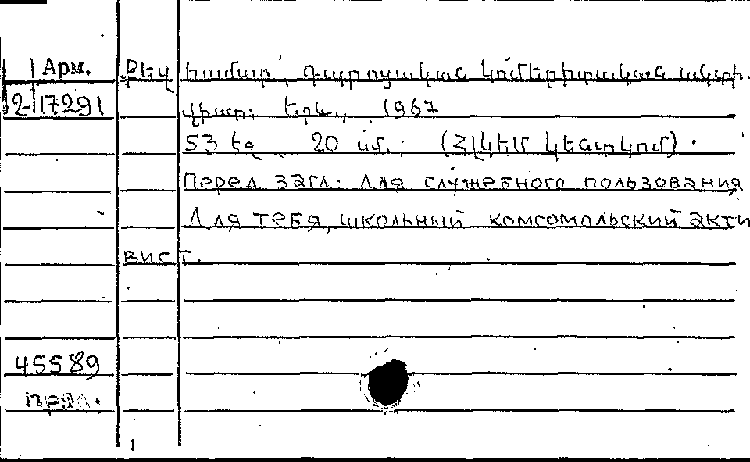 Арм. Քեզ համար, դպրոցական կոմերիտական ակտի-
2-17291 վիստ: Երև., 1967
53 էջ 20 սմ. (ՀԼԿԵՄ Կենտկոմ).
Перед загл: Для служебного пользования
Для тебя, школьный комсомольский акти
вист.
45589
1